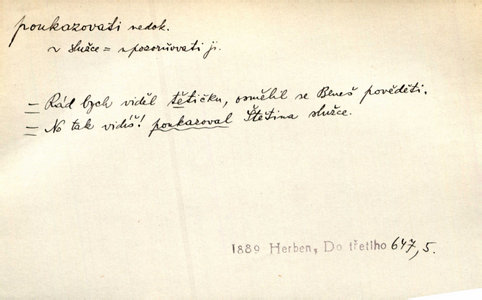 poukazovati nedok.
~ služce = upozorňovati ji.
= Rád bych viděl tětičku, osmělil se Beneš pověděti.
= No tak vidíš! poukazoval Štětina služce.
1889 Herben, Do třetího 647, 5.